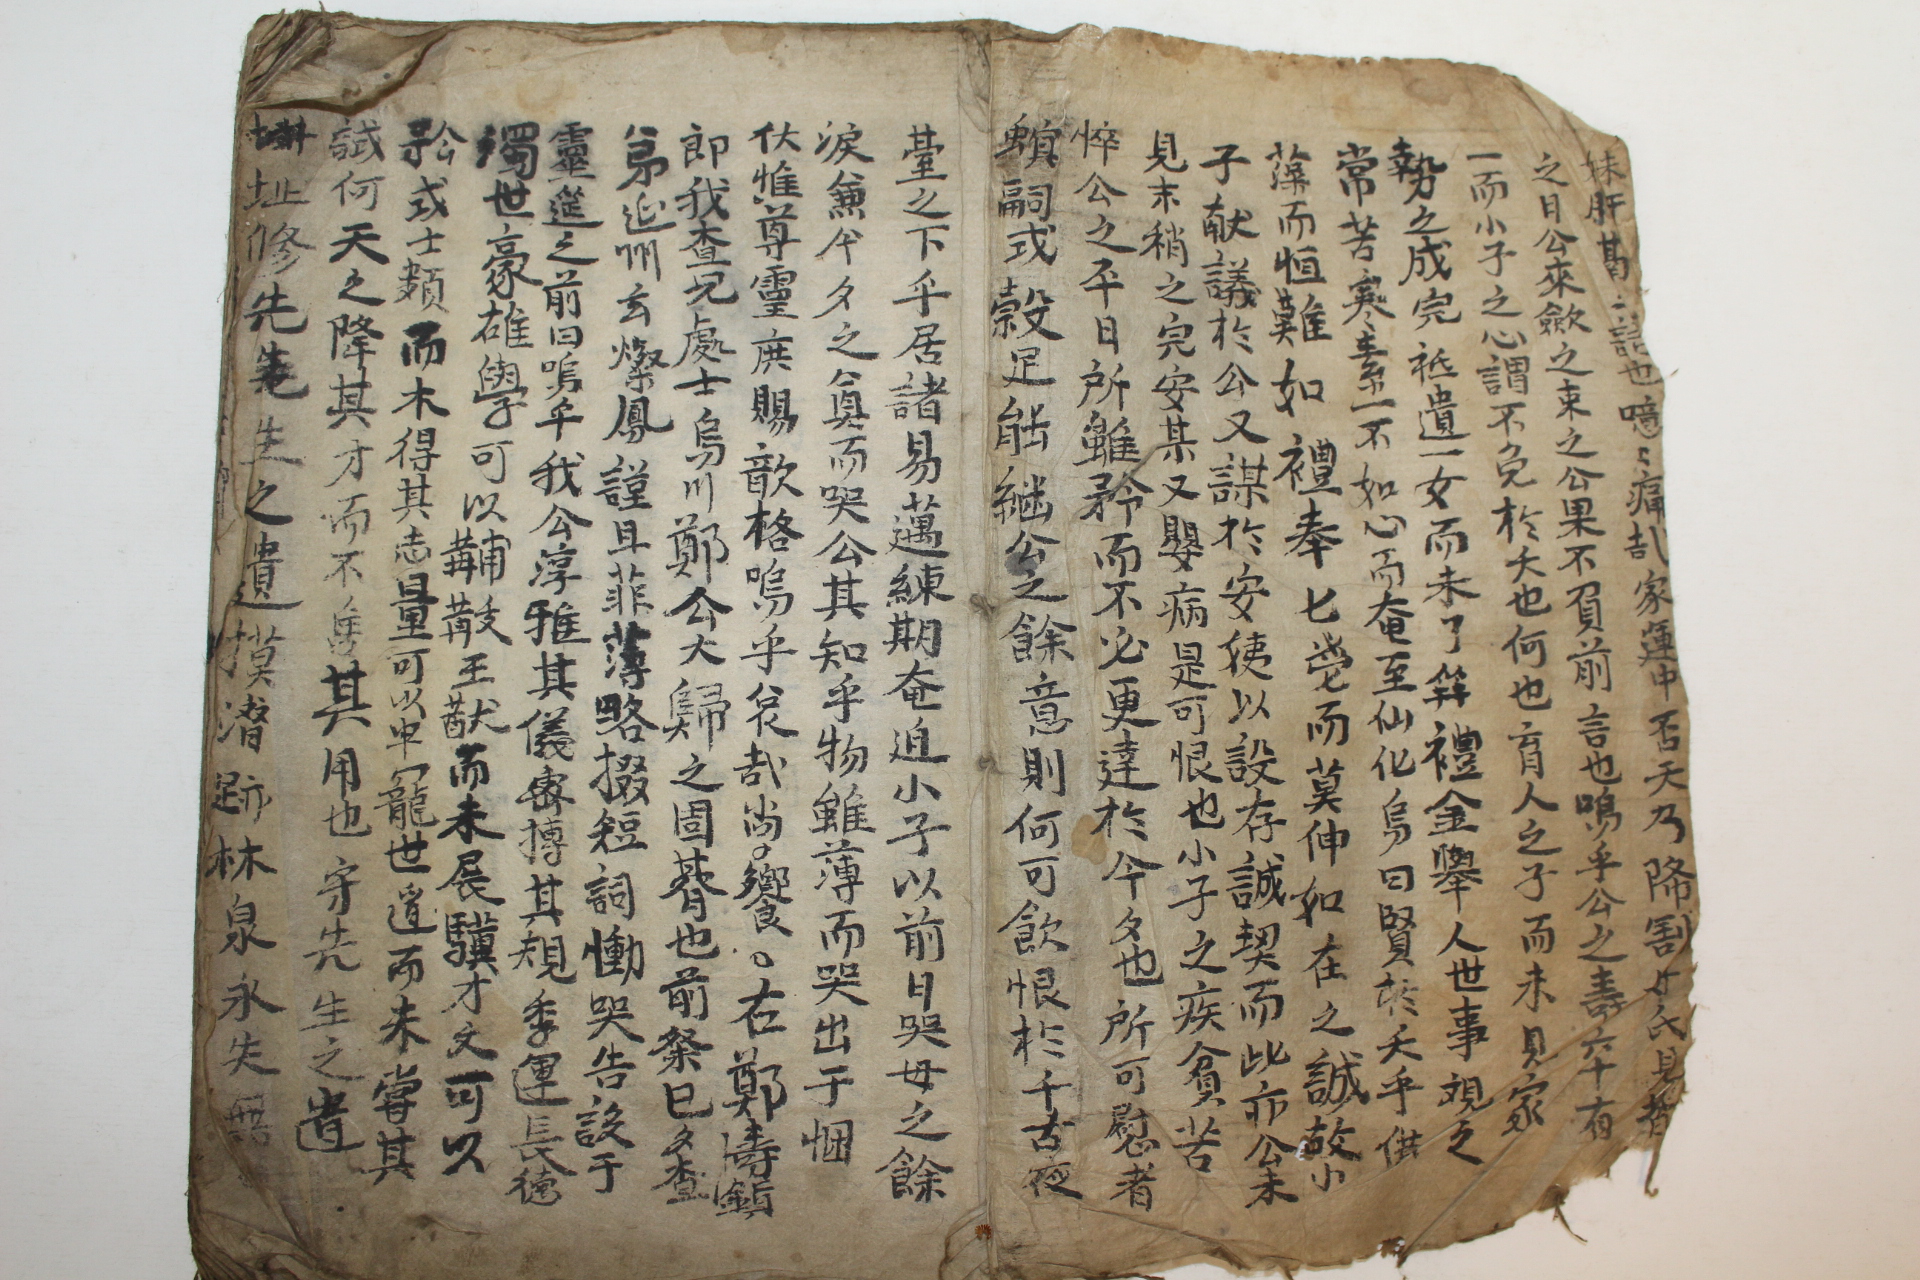 妹肝萬之語也噫〻痛哉家運中否天乃降割母氏見背
之日公來斂之束之公果不負前言也嗚乎公之壽六十有
一而小子之心謂不免於夭也何也育人之子而未見家
勢之成完祗遺一女而未了笄禮金舉人世事親之
常苦寒素一不如心而奄至仙化烏曰賢於夭乎供
藻而恒難如禮奉匕甍而莫伸如在之誠故小
子献議於公又謀於安姨以設存誠契而此亦公未
見末稍之完安某又嬰病是可恨也小子之疾貧苦
悴公之平日所雖矜而不必更達於今夕也所可慰者
螟嗣式穀足能継公之餘意則何可飲恨於千古夜
臺之下乎居諸易邁練期奄迫小子以前日哭母之餘
淚兼今夕之奠而哭公其知乎物雖薄而哭出于悃
伏惟尊霊庶賜歆格嗚乎哀哉尚饗右鄭燾鎮
郎我查兄處士烏川鄭公大歸之固朞也前祭已夕查
弟延州玄燦鳳謹且菲薄略掇短詞慟哭告設于
靈筵之前曰嗚乎我公淳雅其儀專搏其規季運長德
獨世豪雄學可以黼黻王猷而未展驥才文可以
於式士類而木得其志量可以牢籠世道而未嘗其
試何天之降其才而不售其用也守先生之遺
址修先生之遺摸潛跡林泉永失